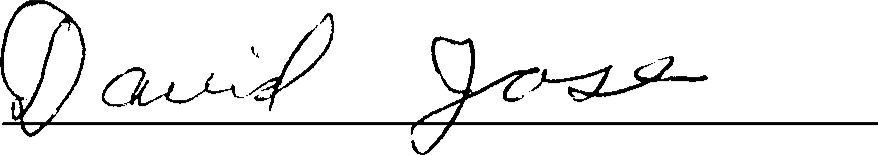 David Jose